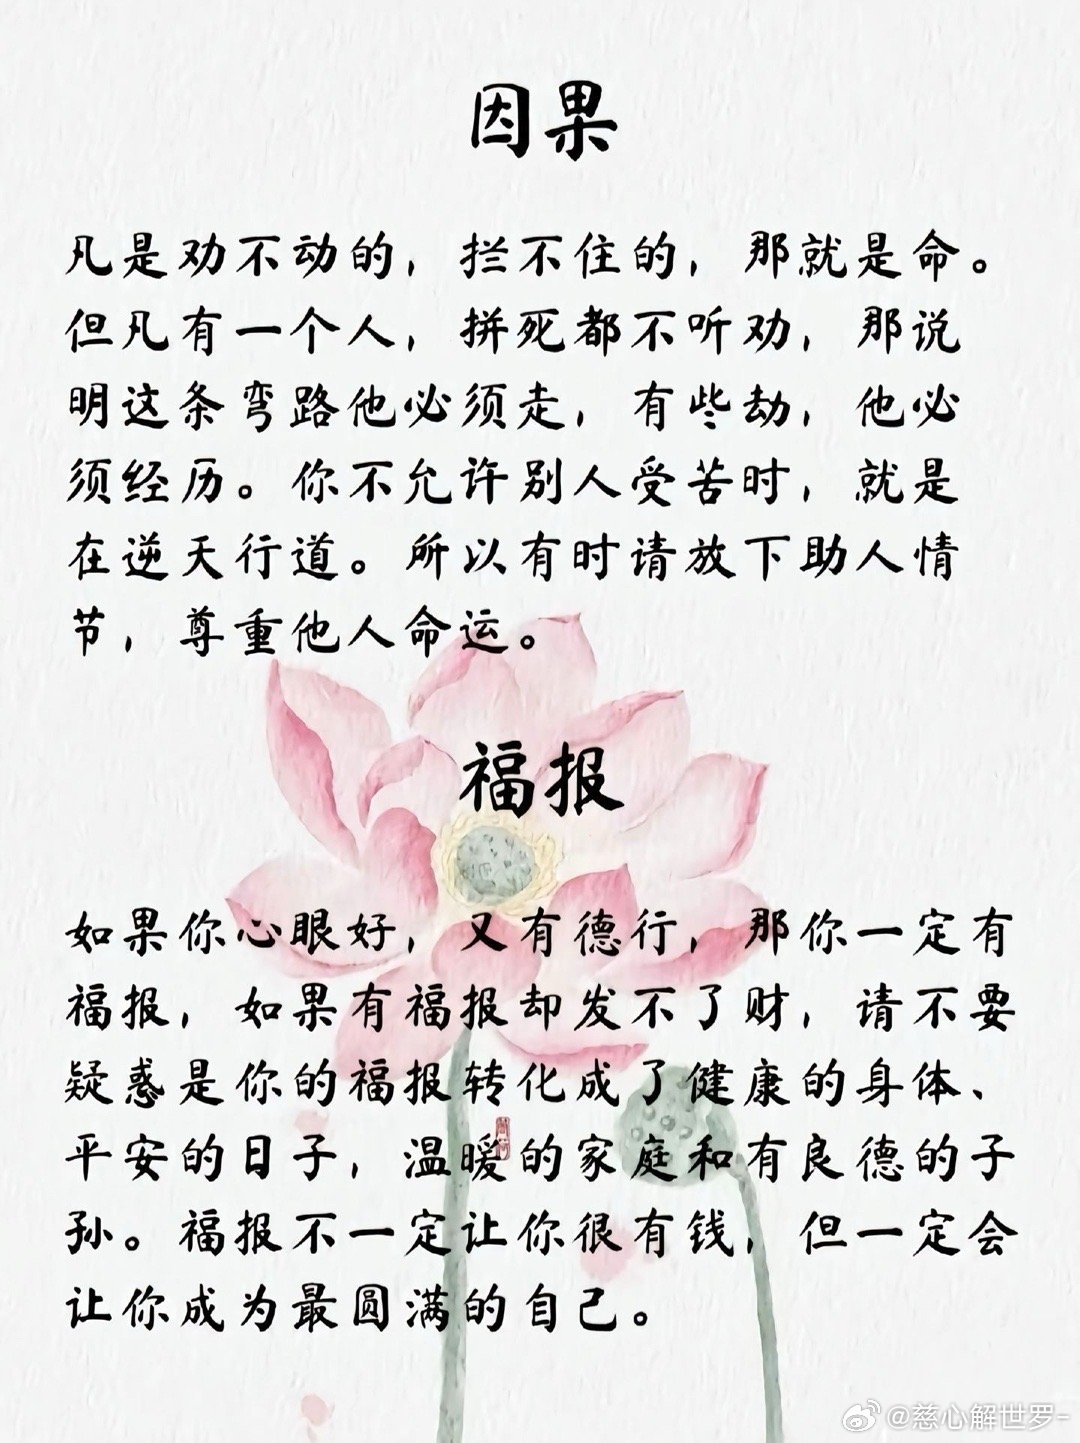 因果
凡是劝不动的，拦不住的，那就是命。
但凡有一个人，拼死都不听劝，那说
明这条弯路他必须走，有些劫，他必
须经历。你不允许别人受苦时，就是
在逆天行道。所以有时请放下助人情
节，尊重他人命运。
福报
如果你心眼好，又有德行，那你一定有
福报，如果有福报却发不了财，请不要
疑惑是你的福报转化成了健康的身体、
平安的日子，温暖的家庭和有良德的子
孙。福报不一定让你很有钱，但一定会
让你成为最圆满的自己。
@慈心解世罗-